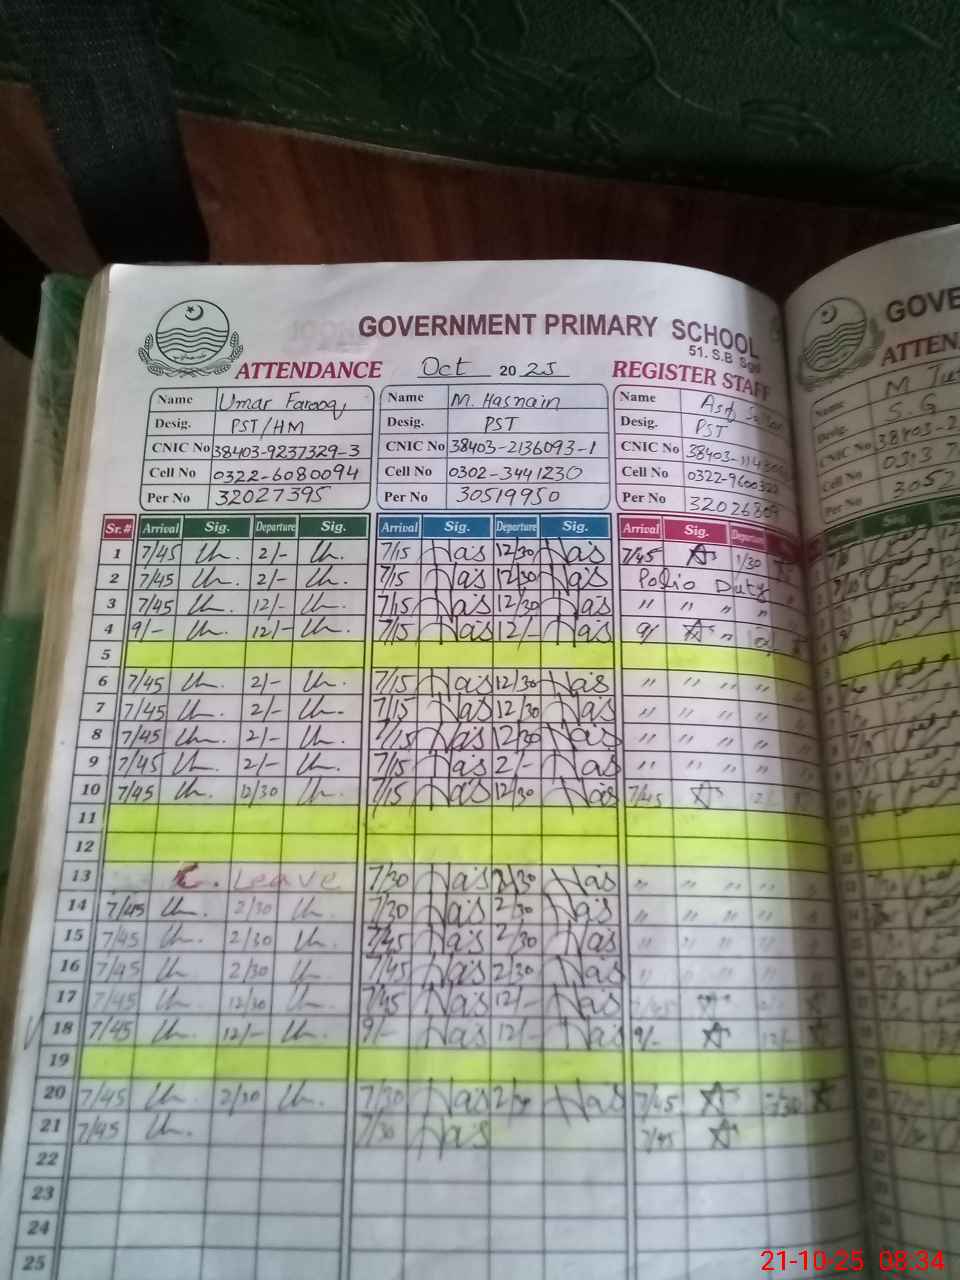 GOVERNMENT PRIMARY SCHOOL
51. S.B Sgd
ATTENDANCE Oct 2025 REGISTER STAFF
Name Umar Farooq Name M. Hasnain Name Asif
Desig. PST/HM Desig. PST Desig. PST
CNIC No 38403-9237329-3 CNIC No 38403-2136093-1 CNIC No
Cell No 0322-6080094 Cell No 0302-3441230 Cell No
Per No 32027395 Per No 30519950 Per No 32026809
Sr.# Arrival Sig. Departure Sig. Arrival Sig. Departure Sig. Arrival Sig. Departure
1 7/45 Un. 2/- Un. 7/15 Has 12/30 Has 7/45 1/30
2 7/45 Un. 2/- Un. 7/15 Has 12/30 Has Polio Duty
3 7/45 Un. 12/- Un. 7/15 Has 12/30 Has " " " "
4 9/- Un. 12/- Un. 7/15 Has 12/- Has 9/ "
5
6 7/45 Un. 2/- Un. 7/15 Has 12/30 Has " " " "
7 7/45 Un. 2/- Un. 7/15 Has 12/30 Has " " " "
8 7/45 Un. 2/- Un. 7/15 Has 12/30 Has " " " "
9 7/45 Un. 2/- Un. 7/15 Has 2/- Has " " " "
10 7/45 Un. 12/30 Un. 7/15 Has 12/30 Has 7/45
11
12
13 C. Leave 7/30 Has 2/30 Has " " " "
14 7/45 Un. 2/30 Un. 7/30 Has 2/30 Has " " " "
15 7/45 Un. 2/30 Un. 7/45 Has 2/30 Has " " " "
16 7/45 Un. 2/30 Un. 7/45 Has 2/30 Has " " " "
17 7/45 Un. 12/30 Un. 7/45 Has 12/- Has 7/45
18 7/45 Un. 12/- Un. 9/- Has 12/- Has 9/- 12/-
19
20 7/45 Un. 2/30 Un. 7/30 Has 2/30 Has 7/45
21 7/45 Un. 7/30 Has 7/45
22
23
24
25
GOVE
ATTEN
Name M
Desig. S.G
CNIC No 38403-2
Cell No
Per No 3052
21-10-25 08:34